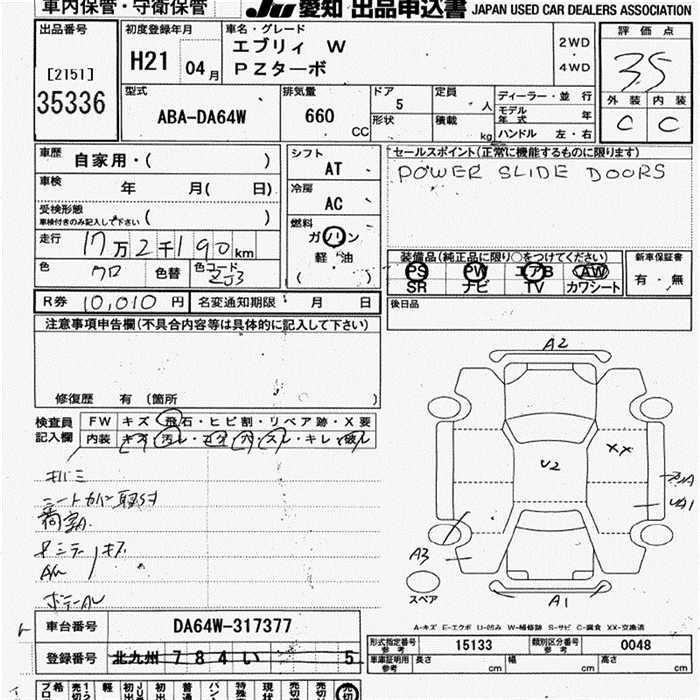 車内保管・守衛保管
JU 愛知 出品申込書 JAPAN USED CAR DEALERS ASSOCIATION
出品番号
[2151]
35336
初度登録年月
H21 04 月
車名・グレード
エブリィ W
PZターボ
2WD
4WD
評価点
3.5
外装 内装
C C
型式
ABA-DA64W
排気量
660
CC
ドア
5
形状
定員
人
積載
kg
ディーラー・並 行
モデル年式 年
ハンドル 左・右
車歴
自家用・( )
車検
年 月( 日)
受検形態
車検付きのみ記入して下さい ( )
走行
17万2千190km
色
クロ
色替
色コード
ZJ3
シフト
AT
冷房
AC
燃料
ガソリン
軽 油
( )
セールスポイント(正常に機能するものに限ります)
POWER SLIDE DOORS
装備品(純正品に限り○をつけてください)
PS PW エアB AW
SR ナビ TV カワシート
新車保証書
有・無
後日品
R券 10,010 円
名変通知期限 月 日
注意事項申告欄(不具合内容等は具体的に記入して下さい)
修復歴 有 (箇所 )
検査員記入欄
FW キズ・飛石・ヒビ割・リペア跡・X要
内装 キズ・汚レ・コゲ・穴・スレ・キレ・破レ
キバミ
シートカバー取付
A2
U2
XX
UA1
A3
A1
スペア
A-キズ E-エクボ U-凹み W-補修跡 S-サビ C-腐食 XX-交換済
車台番号
DA64W-317377
登録番号
北九州 784 い 5
形式指定番号 参考
15133
類別区分番号 参考
0048
車庫証明用 参考
長さ cm
幅 cm
高さ cm